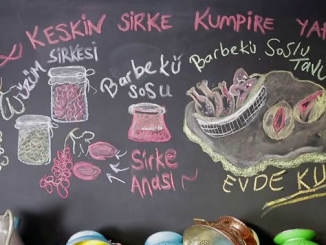 KESKİN SİRKE KUMPİRE YA
ÜZÜM
SİRKESİ
Barbekü
SOSU
Barbekü Soslu
Tavu
Sirke
Anası
EVDE KU